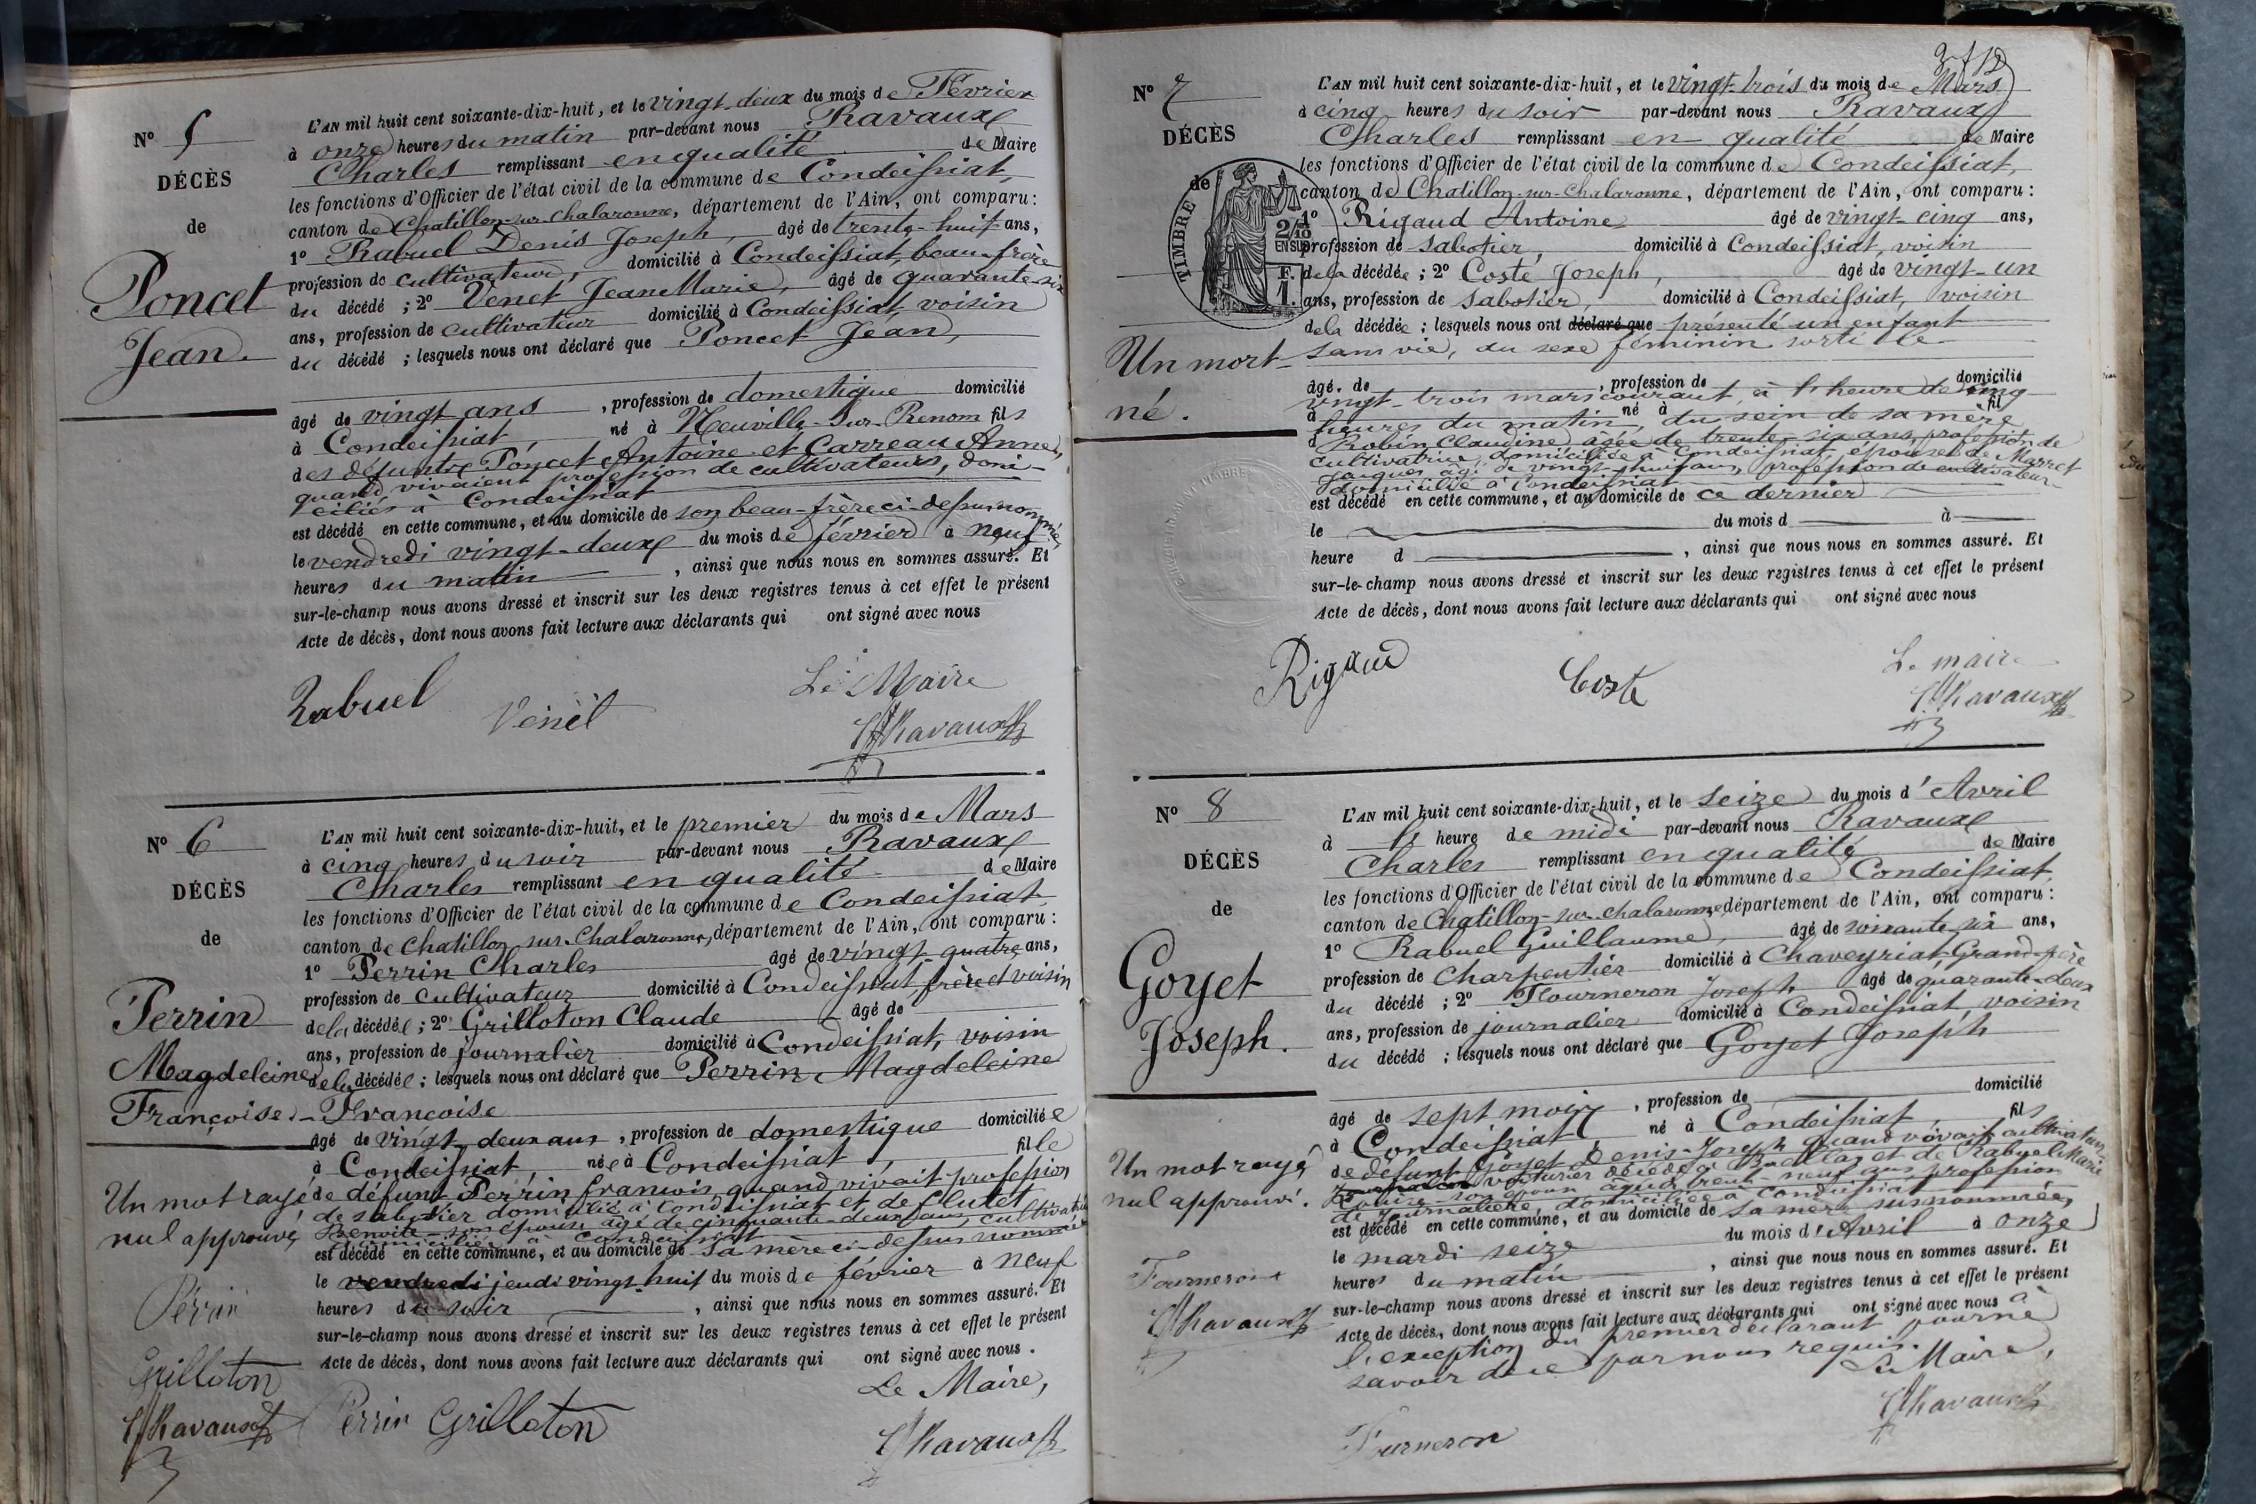 N° 5
DÉCÈS
de
Poncet
Jean.
L'AN mil huit cent soixante-dix-huit, et le vingt-deux du mois de Février
à onze heures du matin par-devant nous Ravaux
Charles remplissant en qualité de Maire
les fonctions d'Officier de l'état civil de la commune de Condeissiat,
canton de Chatillon-sur-Chalaronne, département de l'Ain, ont comparu :
1° Rabuel Denis Joseph, âgé de trente-huit ans,
profession de cultivateur, domicilié à Condeissiat, beau-frère
du décédé ; 2° Venet Jean Marie, âgé de quarante-six
ans, profession de cultivateur domicilié à Condeissiat, voisin
du décédé ; lesquels nous ont déclaré que Poncet Jean,
âgé de vingt ans, profession de domestique domicilié
à Condeissiat, né à Neuville-sur-Renom fils
des défunts Poncet Antoine et Carreau Anne,
quand vivaient profession de cultivateurs, domi-
ciliés à Condeissiat
est décédé en cette commune, et au domicile de son beau-frère ci-dessus nommé,
le vendredi vingt-deux du mois de février à neuf
heures du matin, ainsi que nous nous en sommes assuré. Et
sur-le-champ nous avons dressé et inscrit sur les deux registres tenus à cet effet le présent
Acte de décès, dont nous avons fait lecture aux déclarants qui ont signé avec nous
Rabuel Venet Le Maire
Ravaux
N° 6
DÉCÈS
de
Perrin
Magdeleine
Françoise.
Un mot rayé
nul approuvé
Perrin
Grilloton
Ravaux
L'AN mil huit cent soixante-dix-huit, et le premier du mois de Mars
à cinq heures du soir par-devant nous Ravaux
Charles remplissant en qualité de Maire
les fonctions d'Officier de l'état civil de la commune de Condeissiat,
canton de Chatillon sur Chalaronne, département de l'Ain, ont comparu :
1° Perrin Charles âgé de vingt quatre ans,
profession de cultivateur domicilié à Condeissiat, frère et voisin
de la décédée ; 2° Grilloton Claude âgé de
ans, profession de journalier domicilié à Condeissiat, voisin
de la décédée ; lesquels nous ont déclaré que Perrin Magdeleine
Françoise
âgé de vingt-deux ans, profession de domestique domiciliée
à Condeissiat, née à Condeissiat, fille
de défunt Perrin françois quand vivait profession
de sabotier domicilié à Condeissiat et de Clutet
Benoite son épouse âgé de cinquante-deux ans, cultivatrice
domiciliée à Condeissiat
est décédé en cette commune, et au domicile de sa mère ci-dessus nommée
le vendredi jeudi vingt-huit du mois de février à neuf
heures du soir, ainsi que nous nous en sommes assuré. Et
sur-le-champ nous avons dressé et inscrit sur les deux registres tenus à cet effet le présent
Acte de décès, dont nous avons fait lecture aux déclarants qui ont signé avec nous.
Le Maire,
Perrin Grilloton Ravaux
N° 7
DÉCÈS
de
TIMBRE
2/10
EN SUS
F.
1.
Un mort-
né.
L'AN mil huit cent soixante-dix-huit, et le vingt-trois du mois de Mars
à cinq heures du soir par-devant nous Ravaux
Charles remplissant en qualité de Maire
les fonctions d'Officier de l'état civil de la commune de Condeissiat,
canton de Chatillon-sur-Chalaronne, département de l'Ain, ont comparu :
1° Rigaud Antoine âgé de vingt-cinq ans,
profession de sabotier, domicilié à Condeissiat, voisin
de la décédée ; 2° Coste Joseph, âgé de vingt-un
ans, profession de sabotier, domicilié à Condeissiat, voisin
de la décédée ; lesquels nous ont déclaré que présenté un enfant
sans vie, du sexe féminin sorti le
âgé de , profession de domicilié
vingt-trois mars courant, à l'heure de cinq
à né à fil
heures du matin, du sein de sa mère
d Robin Claudine âgée de trente-six ans, profession de
cultivatrice, domiciliée à Condeissiat, épouse de Marret
Jacques âgé de vingt-huit ans, profession de cultivateur
domicilié à Condeissiat
est décédé en cette commune, et au domicile de ce dernier
le du mois d à
heure d , ainsi que nous nous en sommes assuré. Et
sur-le-champ nous avons dressé et inscrit sur les deux registres tenus à cet effet le présent
Acte de décès, dont nous avons fait lecture aux déclarants qui ont signé avec nous
Rigaud Coste Le maire
Ravaux
N° 8
DÉCÈS
de
Goyet
Joseph.
Un mot rayé
nul approuvé.
Fourneron
Ravaux
L'AN mil huit cent soixante-dix-huit, et le seize du mois d'Avril
à heure de midi par-devant nous Ravaux
Charles remplissant en qualité de Maire
les fonctions d'Officier de l'état civil de la commune de Condeissiat,
canton de Chatillon-sur-Chalaronne, département de l'Ain, ont comparu :
1° Rabuel Guillaume, âgé de soixante six ans,
profession de Charpentier domicilié à Chaveyriat Grand-père
du décédé ; 2° Flourneron Joseph âgé de quarante-deux
ans, profession de journalier domicilié à Condeissiat, voisin
du décédé ; lesquels nous ont déclaré que Goyet Joseph
âgé de sept mois, profession de domicilié
à Condeissiat né à Condeissiat, fils
de défunt Goyet Denis-Joseph quand vivait cultivateur
voiturier décédé à et de Rabuel Marie
son épouse âgée de trente-neuf ans profession
de journalière, domiciliée à Condeissiat
est décédé en cette commune, et au domicile de sa mère susnommée,
le mardi seize du mois d'Avril à onze
heures du matin, ainsi que nous nous en sommes assuré. Et
sur-le-champ nous avons dressé et inscrit sur les deux registres tenus à cet effet le présent
Acte de décès, dont nous avons fait lecture aux déclarants qui ont signé avec nous à
l'exception du premier déclarant pour ne
savoir de ce par nous requis.
Le Maire,
Fourneron Ravaux